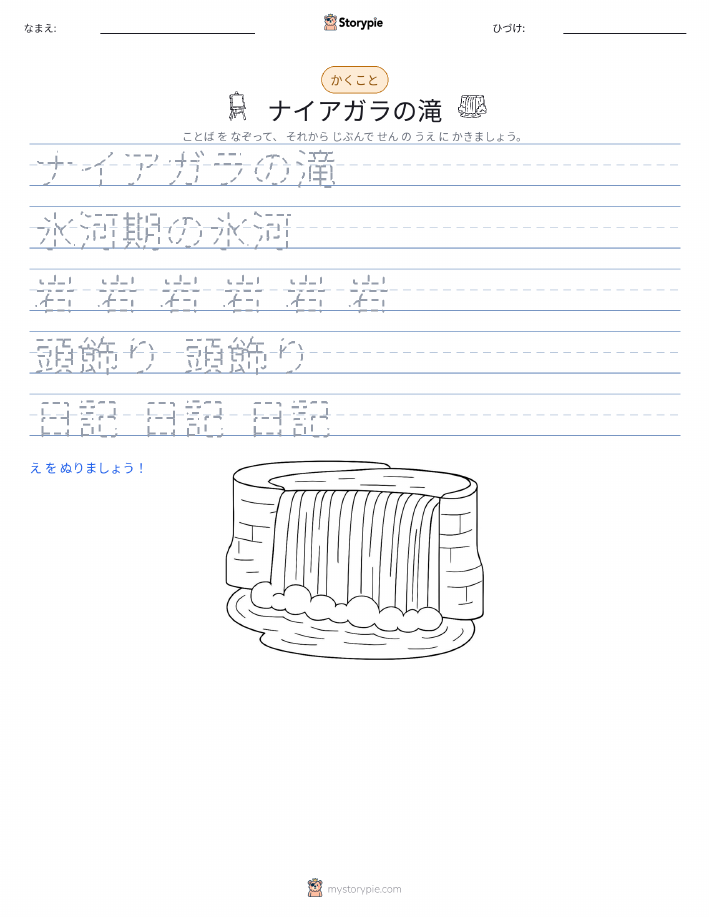 なまえ:
Storypie
ひづけ:
かくこと
ナイアガラの滝
ことば を なぞって、 それから じぶんで せん の うえ に かきましょう。
ナイアガラの滝
氷河期の氷河
岩 岩 岩 岩 岩 岩
頭飾り 頭飾り
日記 日記 日記
え を ぬりましょう！
mystorypie.com